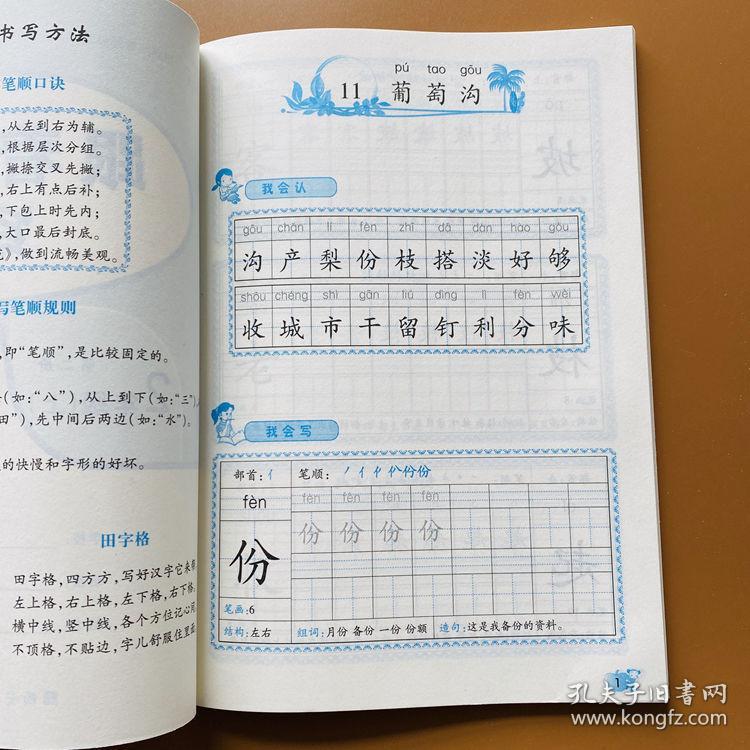 书写方法
笔顺口诀
,从左到右为辅。
,根据层次分组。
,撇捺交叉先撇;
,右上有点后补;
,下包上时先内;
,大口最后封底。
》,做到流畅美观。
写笔顺规则
,即“笔顺”,是比较固定的。
(如:“八”),从上到下(如:“三”)
田”),先中间后两边(如:“水”)。
的快慢和字形的好坏。
田字格
田字格,四方方,写好汉字它来帮
左上格,右上格,左下格,右下格
横中线,竖中线,各个方位记心间
不顶格,不贴边,字儿舒服住里面
pú tao gōu
11 葡萄沟
我会认
gōu chǎn lí fèn zhī dā dàn hǎo gòu
沟 产 梨 份 枝 搭 淡 好 够
shōu chéng shì gān liú dīng lì fēn wèi
收 城 市 干 留 钉 利 分 味
我会写
部首:亻 笔顺:丿 亻 亻 份
fèn fèn fèn fèn fèn
份 份 份 份 份
笔画:6
结构:左右 组词:月份 备份 一份 份额 造句:这是我备份的资料。
1
孔夫子旧书网
www.kongfz.com